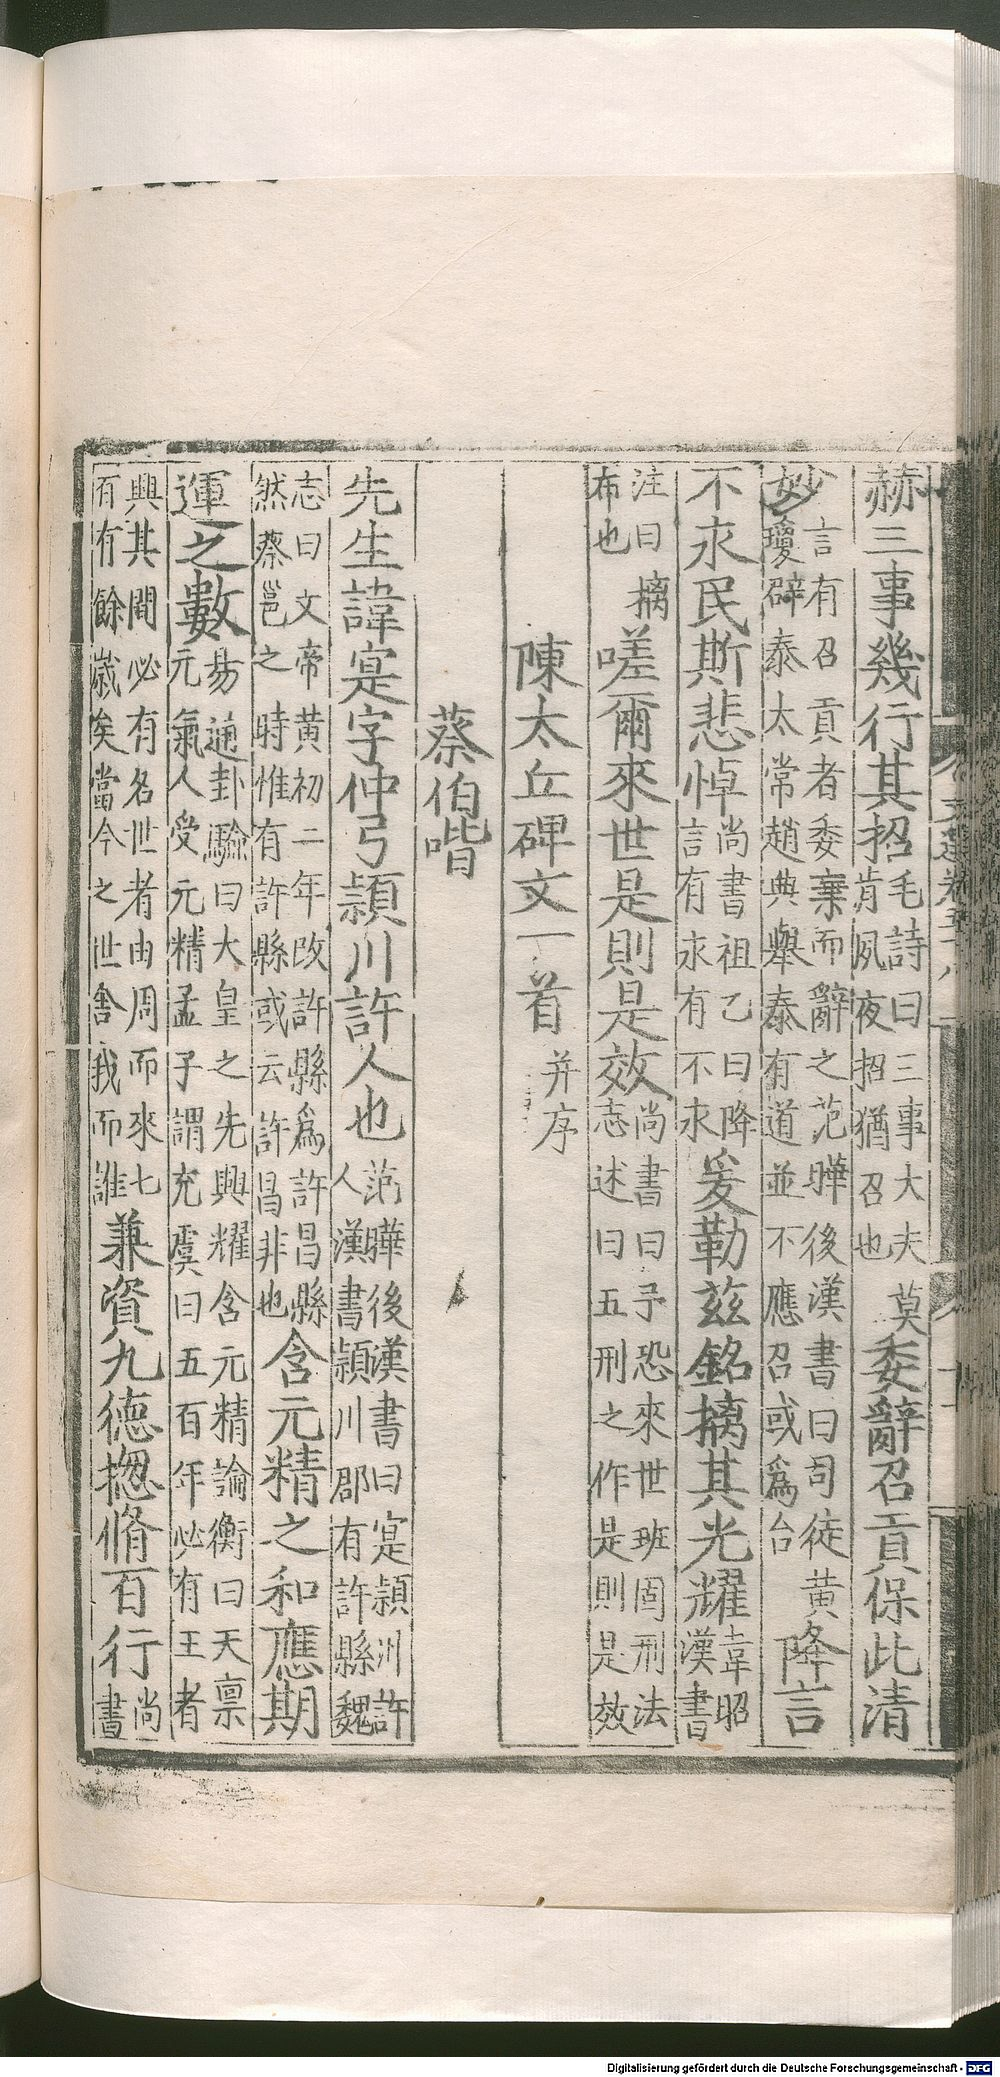 文選卷五十八
赫三事幾行其招
毛詩曰三事大夫莫
肯夙夜招猶召也
委辭召貢保此清
妙
言有召貢者委棄而辭之范曄後漢書曰司徒黃
瓊辟泰太常趙典舉泰有道並不應召或爲台
降言
不永民斯悲悼
尚書祖乙曰降
言有永有不永
爰勒茲銘摛其光耀
韋昭
漢書
注曰摛
布也
嗟爾來世是則是效
尚書曰予恐來世班固刑法
志述曰五刑之作是則是效
陳太丘碑文一首
并序
蔡伯喈
先生諱寔字仲弓頴川許人也
范曄後漢書曰寔頴州許
人漢書頴川郡有許縣魏
志曰文帝黃初二年改許縣爲許昌縣
然蔡邕之時惟有許縣或云許昌非也
含元精之和應期
運之數
易通卦驗曰大皇之先興耀含元精論衡曰天禀
元氣人受元精孟子謂充虞曰五百年必有王者
興其間必有名世者由周而來七
百有餘歲矣當今之世舍我而誰
兼資九德揔脩百行
尚
書
Digitalisierung gefördert durch die Deutsche Forschungsgemeinschaft - DFG